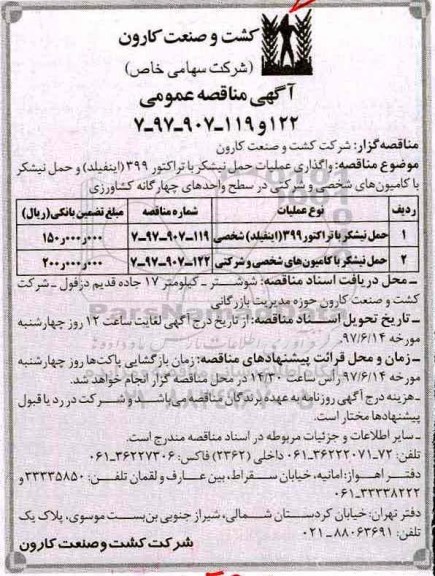 کشت و صنعت کارون
(شرکت سهامی خاص)
آگهی مناقصه عمومی
۱۲۲ و ۱۱۹-۹۰۷-۹۷-۷
مناقصه‌گزار: شرکت کشت و صنعت کارون
موضوع مناقصه: واگذاری عملیات حمل نیشکر با تراکتور ۳۹۹ (اینفیلد) و حمل نیشکر
با کامیون‌های شخصی و شرکتی در سطح واحدهای چهارگانه کشاورزی
ردیف نوع عملیات شماره مناقصه مبلغ تضمین بانکی (ریال)
۱ حمل نیشکر با تراکتور ۳۹۹ (اینفیلد) شخصی ۱۱۹-۹۰۷-۹۷-۷ ۱۵۰٫۰۰۰٫۰۰۰
۲ حمل نیشکر با کامیون‌های شخصی و شرکتی ۱۲۲-۹۰۷-۹۷-۷ ۲۰۰٫۰۰۰٫۰۰۰
ـ محل دریافت اسناد مناقصه: شوشتر ـ کیلومتر ۱۷ جاده قدیم دزفول ـ شرکت
کشت و صنعت کارون حوزه مدیریت بازرگانی
ـ تاریخ تحویل اسناد مناقصه: از تاریخ درج آگهی لغایت ساعت ۱۲ روز چهارشنبه
مورخه ۹۷/۶/۱۴.
ـ زمان و محل قرائت پیشنهادهای مناقصه: زمان بازگشایی پاکت‌ها روز چهارشنبه
مورخه ۹۷/۶/۱۴ رأس ساعت ۱۲/۳۰ در محل مناقصه گزار انجام خواهد شد.
ـ هزینه درج آگهی روزنامه به عهده برندگان مناقصه می‌باشد و شرکت در رد یا قبول
پیشنهادها مختار است.
ـ سایر اطلاعات و جزئیات مربوطه در اسناد مناقصه مندرج است.
تلفن: ۷۲-۳۶۲۲۲۰۷۱-۰۶۱ داخلی (۲۳۶۲) فاکس: ۳۶۲۲۷۳۰۶-۰۶۱
دفتر اهواز: امانیه، خیابان سقراط، بین عارف و لقمان تلفن: ۳۳۳۳۵۸۵۰ و
۳۳۳۳۸۲۲۲-۰۶۱
دفتر تهران: خیابان کردستان شمالی، شیراز جنوبی بن‌بست موسوی، پلاک یک
تلفن: ۸۸۰۶۳۶۹۱-۰۲۱
شرکت کشت و صنعت کارون